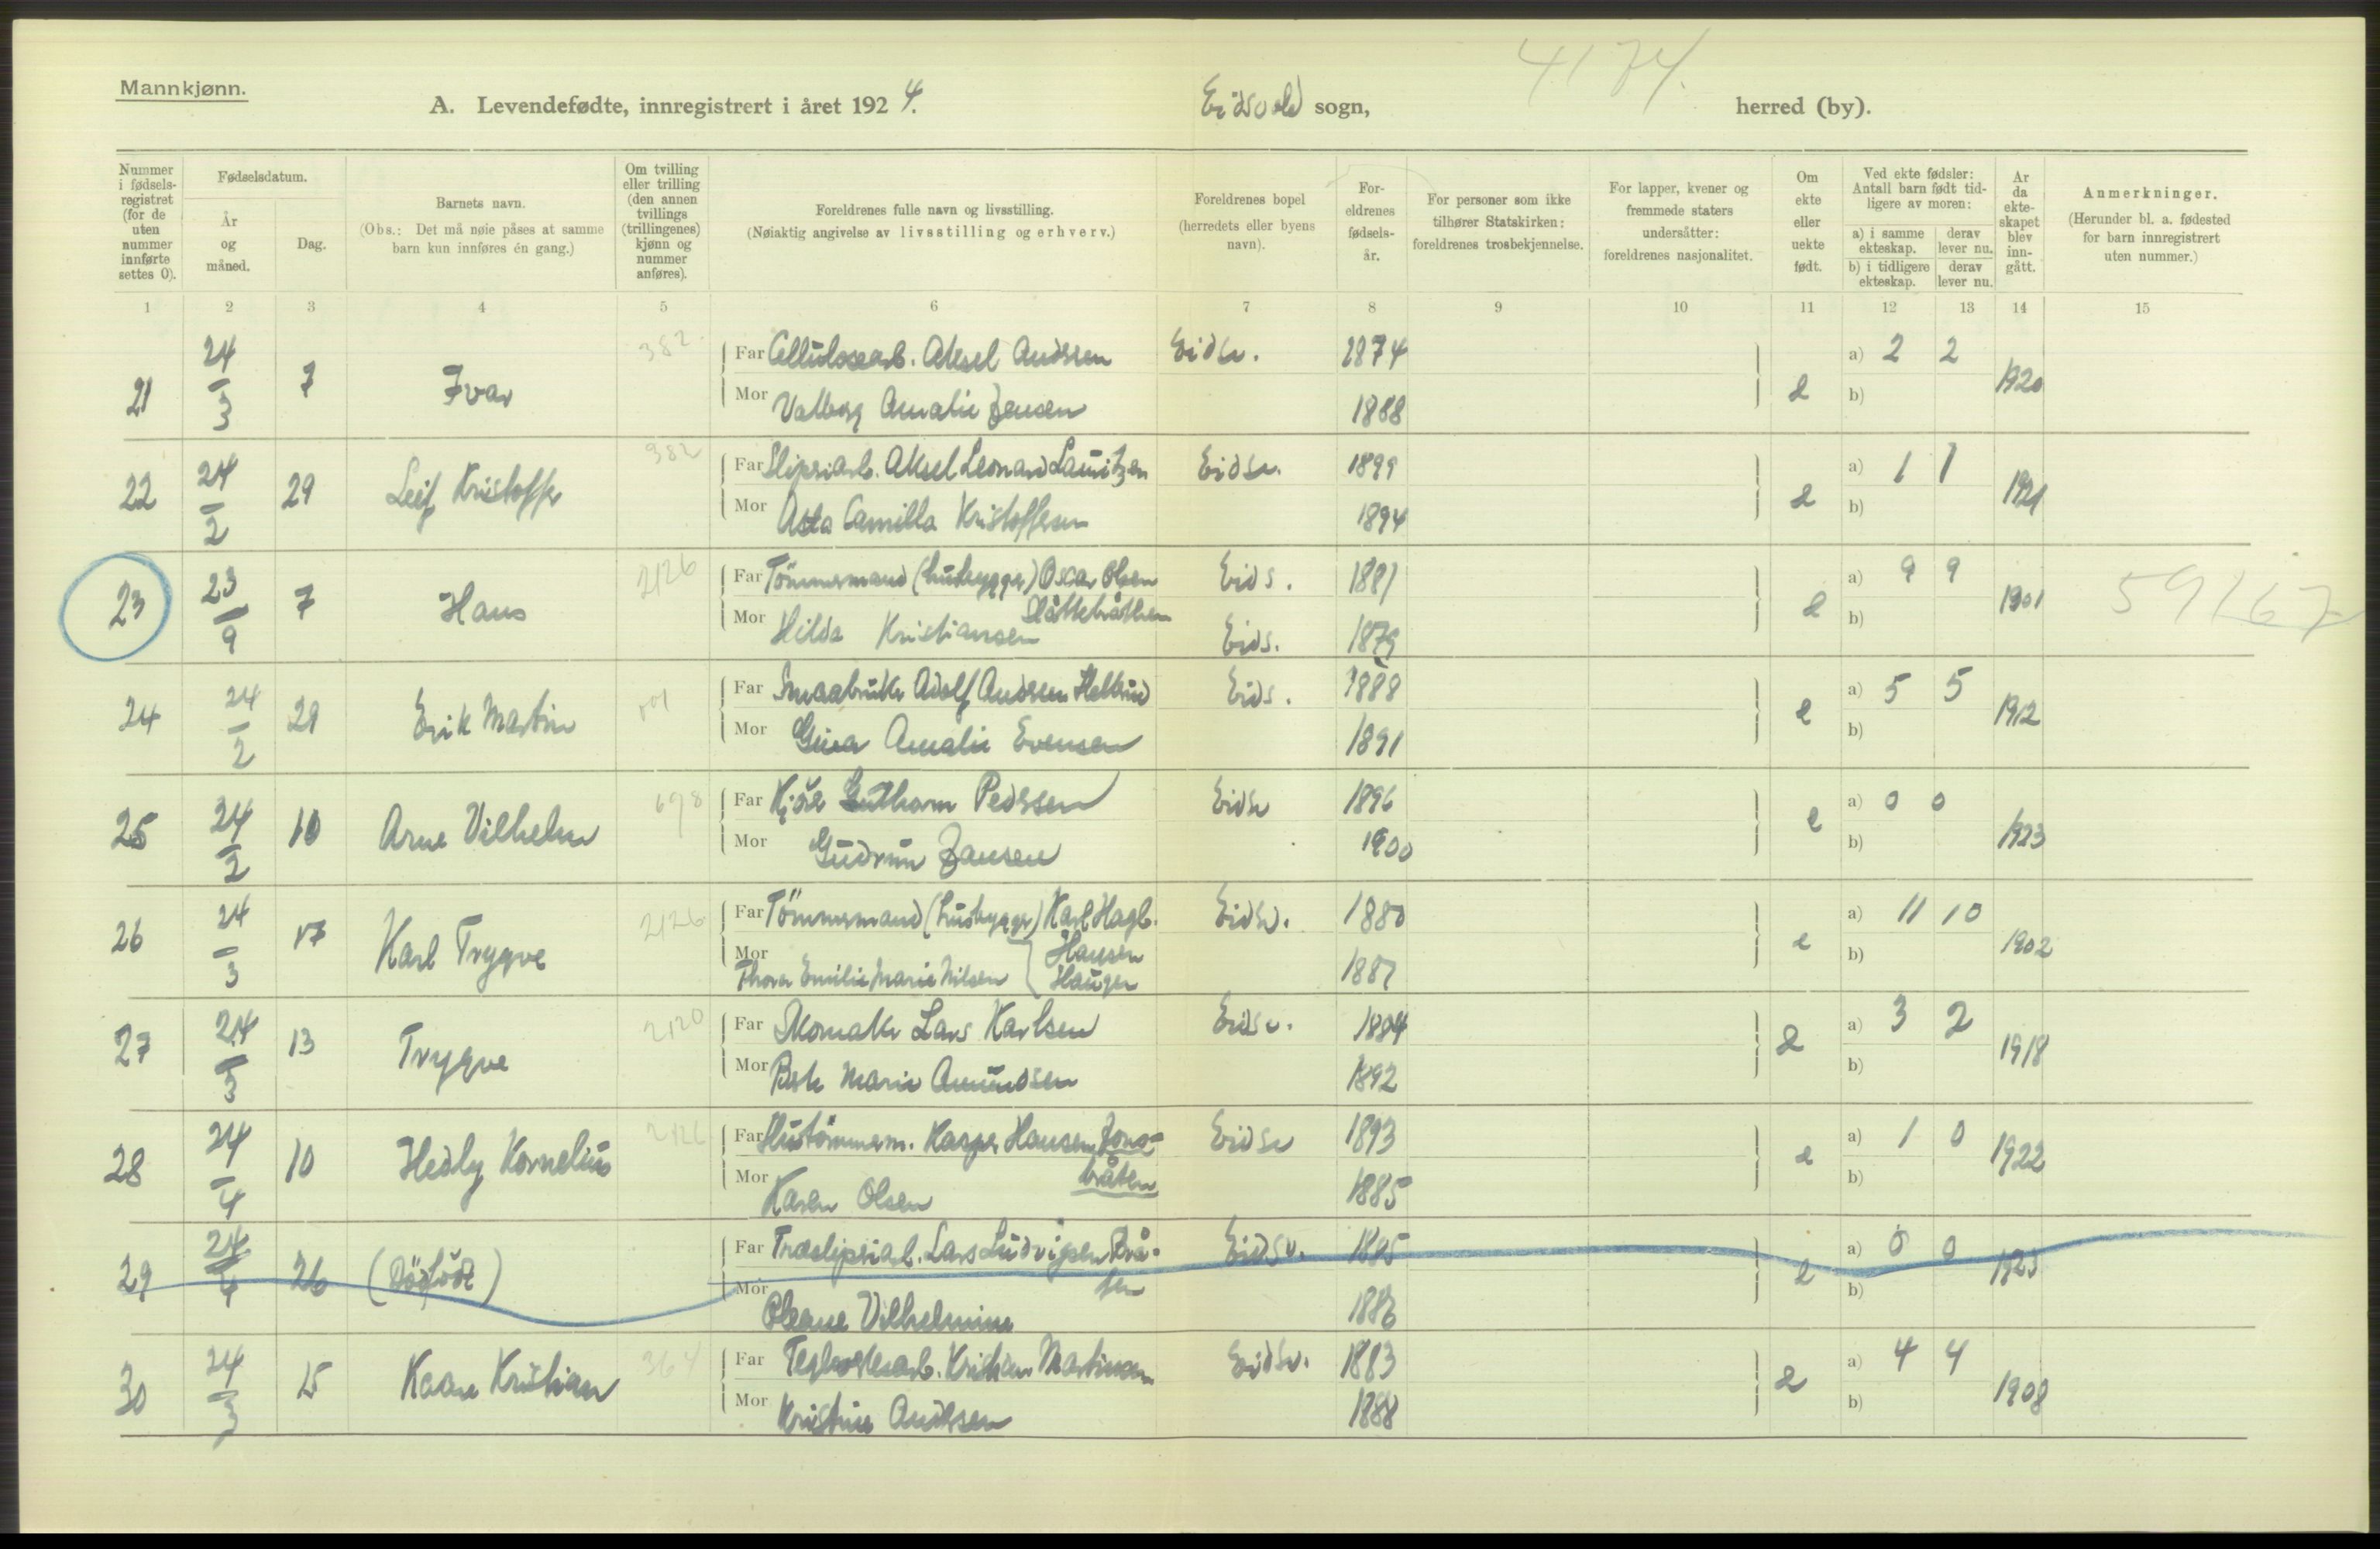 Mannkjønn.
A. Levendefødte, innregistrert i året 1924. Eidsvold sogn, 4174. herred (by).
Nummer i fødsels-registret (for de uten nummer innførte settes 0).
Fødselsdatum.
År og måned.
Dag.
Barnets navn.
(Obs.: Det må nøie påses at samme barn kun innføres én gang.)
Om tvilling eller trilling (den annen tvillings (trillingenes) kjønn og nummer anføres).
Foreldrenes fulle navn og livsstilling.
(Nøiaktig angivelse av livsstilling og erhverv.)
Foreldrenes bopel (herredets eller byens navn).
For-eldrenes fødsels-år.
For personer som ikke tilhører Statskirken: foreldrenes trosbekjennelse.
For lapper, kvener og fremmede staters undersåtter: foreldrenes nasjonalitet.
Om ekte eller uekte født.
Ved ekte fødsler: Antall barn født tid-ligere av moren:
a) i samme ekteskap. derav lever nu.
b) i tidligere ekteskap. derav lever nu.
Ar da ekte-skapet blev inn-gått.
Anmerkninger.
(Herunder bl. a. fødested for barn innregistrert uten nummer.)
1 2 3 4 5 6 7 8 9 10 11 12 13 14 15
21 24/3 7 Ivar 382 Far Cellulosearb. Aksel Andersen Eidsv. 1874 e a) 2 2 1920
Mor Valborg Amalie Jensen 1888 b)
22 24/2 29 Leif Kristoffer 382 Far Sliperiarb. Aksel Leonard Lauritzen Eidsv. 1899 e a) 1 1 1921
Mor Asta Camilla Kristoffersen 1894 b)
23 23/9 7 Hans 2126 Far Tömmermand (husbygger) Oscar Olsen Eids. 1881 e a) 9 9 1901 59167
Slåttebråthen
Mor Hilda Kristiansen Eids. 1879 b)
24 24/2 29 Erik Martin Far Smaabruker Adolf Andersen Eids. 1888 e a) 5 5 1912
Mor Gina Amalie Evensen 1891 b)
25 24/2 10 Arne Vilhelm 698 Far Guthorm Pedersen Eidsv 1896 e a) 0 0 1923
Mor Gudrun Jansen 1900 b)
26 24/3 17 Karl Trygve 2126 Far Tömmermand (husbygger) Karl Hagb. Eidsv. 1880 e a) 11 10 1902
Hansen
Mor Thora Emilie Marie Nilsen Haugen 1881 b)
27 24/3 13 Trygve 2120 Far Skomaker Lars Karlsen Eidsv. 1884 e a) 3 2 1918
Mor Marie Amundsen 1892 b)
28 24/4 10 Hedly Kornelius 2126 Far Hustömmerm. Kasper Hansen Eidsv 1893 e a) 1 0 1922
bråten
Mor Karen Olsen 1885 b)
29 24/4 26 (Dödfödt) Far Træsliperiarb. Lars Ludvigsen Brå- Eidsv. 1885 e a) 0 0 1923
ten
Mor Oleane Vilhelmine b)
30 24/3 15 Kaare Kristian 364 Far Teglverksarb. Kristian Martinsen Eidsv. 1883 e a) 4 4 1908
Mor Kristine Andersen 1888 b)